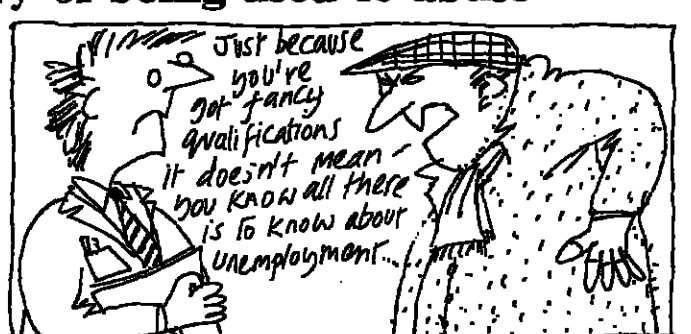 y of being used to abuse
Just because
you're
got fancy
qualifications
it doesn't mean
you know all there
is to know about
unemployment...